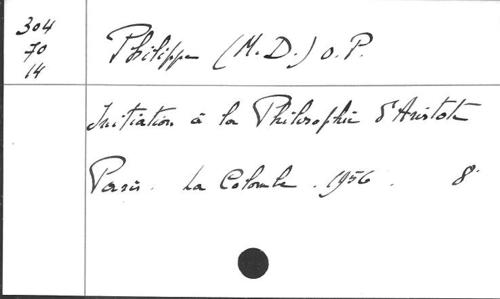 304
70
14
Philippe (M.D.) O.P.
Initiation à la Philosophie d'Aristote
Paris. La Colombe. 1956. 8°